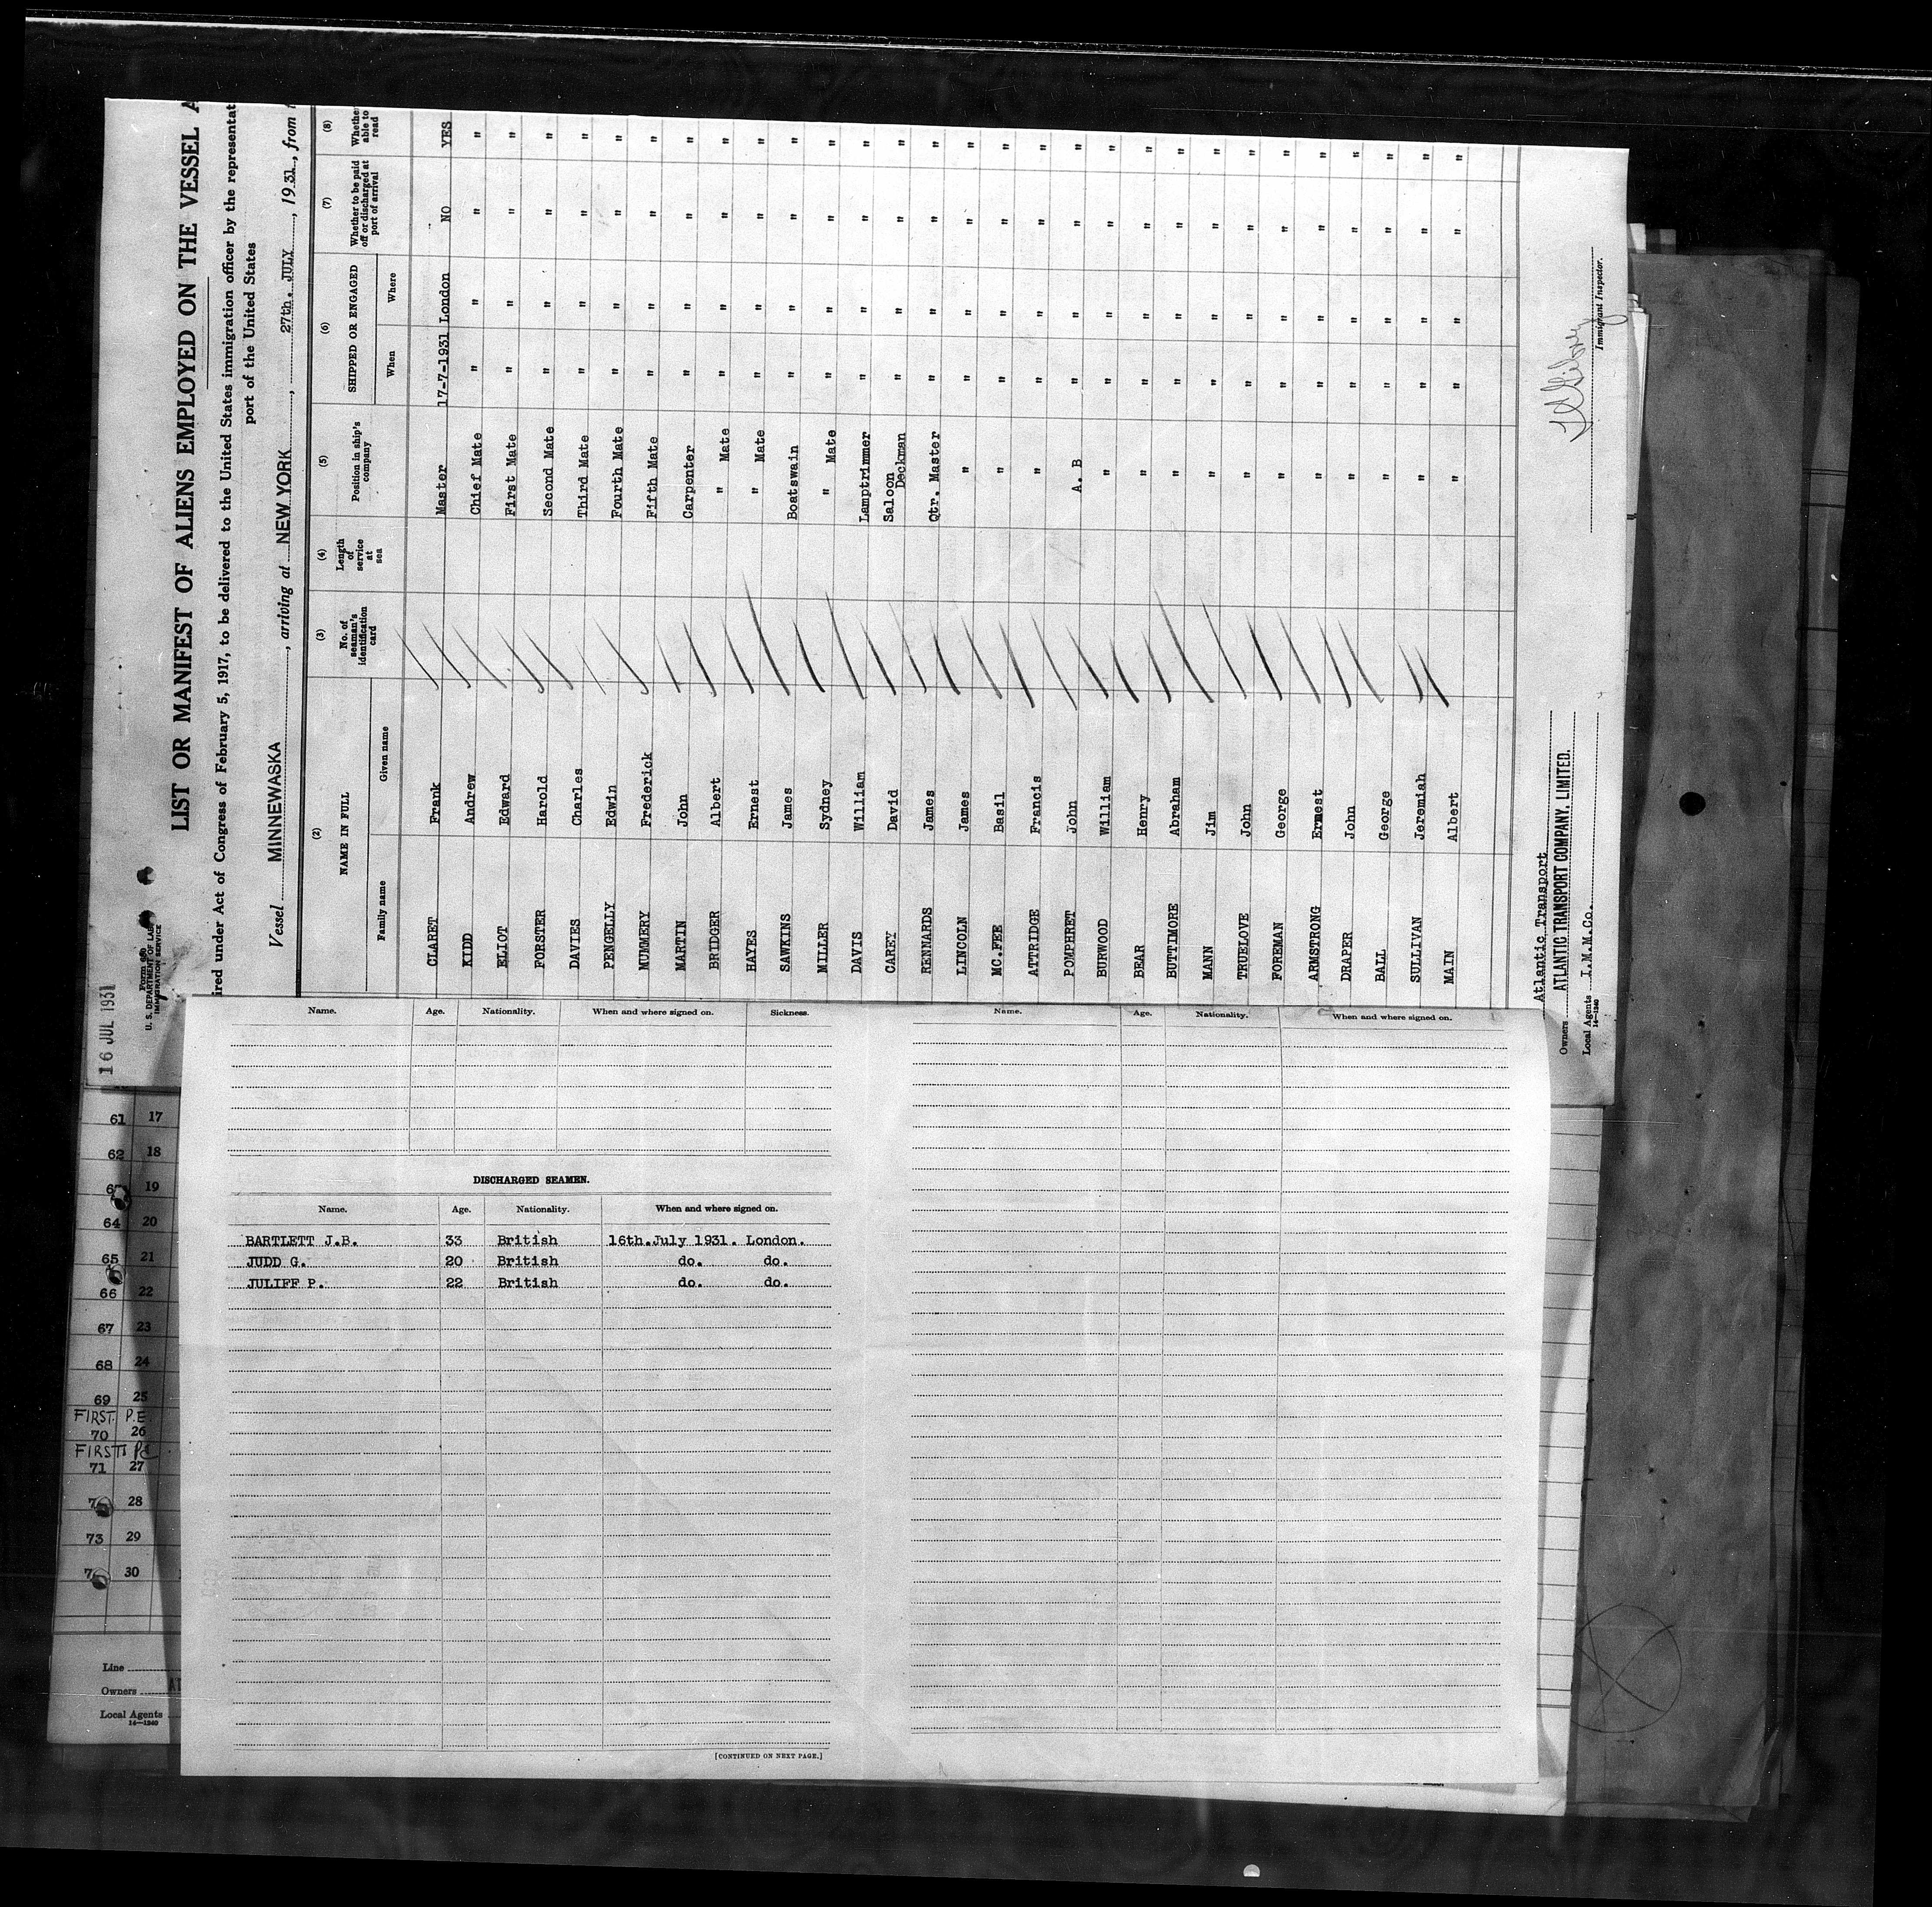 16 JUL 1931
Form 680
U. S. DEPARTMENT OF LAB
IMMIGRATION SERVICE
LIST OR MANIFEST OF ALIENS EMPLOYED ON THE VESSEL A
ired under Act of Congress of February 5, 1917, to be delivered to the United States immigration officer by the representat
port of the United States
Vessel MINNEWASKA, arriving at NEW YORK, 27th. JULY, 1931, from
(2) (3) (4) (5) (6) (7) (8)
NAME IN FULL No. of seaman's identification card Length of service at sea Position in ship's company SHIPPED OR ENGAGED Whether to be paid off or discharged at port of arrival Whether able to read
Family name Given name When Where
CLARET Frank Master 17-7-1931 London NO YES
KIDD Andrew Chief Mate " " " "
ELIOT Edward First Mate " " " "
FORSTER Harold Second Mate " " " "
DAVIES Charles Third Mate " " " "
PENGELLY Edwin Fourth Mate " " " "
MUMMERY Frederick Fifth Mate " " " "
MARTIN John Carpenter " " " "
BRIDGER Albert " Mate " " " "
HAYES Ernest " Mate " " " "
SAWKINS James Boatswain " " " "
MILLER Sydney " Mate " " " "
DAVIS William Lamptrimmer " " " "
CAREY David Saloon Deckman " " " "
RENNARDS James Qtr. Master " " " "
LINCOLN James " " " " "
MC.FEE Basil " " " " "
ATTRIDGE Francis " " " " "
POMPHRET John A. B " " " "
BURWOOD William " " " " "
BEAR Henry " " " " "
BUTTIMORE Abraham " " " " "
MANN Jim " " " " "
TRUELOVE John " " " " "
FOREMAN George " " " " "
ARMSTRONG Ernest " " " " "
DRAPER John " " " " "
BALL George " " " " "
SULLIVAN Jeremiah " " " " "
MAIN Albert " " " " "
Atlantic Transport
Owners ATLANTIC TRANSPORT COMPANY. LIMITED.
Local Agents I.M.M.Co.
14—1240
Immigrant Inspector.
Name. Age. Nationality. When and where signed on. Sickness.
DISCHARGED SEAMEN.
Name. Age. Nationality. When and where signed on.
BARTLETT J.B. 33 British 16th.July 1931. London.
JUDD G. 20 British do. do.
JULIFF P. 22 British do. do.
[CONTINUED ON NEXT PAGE.]
Name. Age. Nationality. When and where signed on.
61 17
62 18
19
64 20
65 21
66 22
67 23
68 24
69 25
FIRST. P.E.
70 26
FIRST
71 27
28
73 29
30
Line
Owners
Local Agents
14—1240